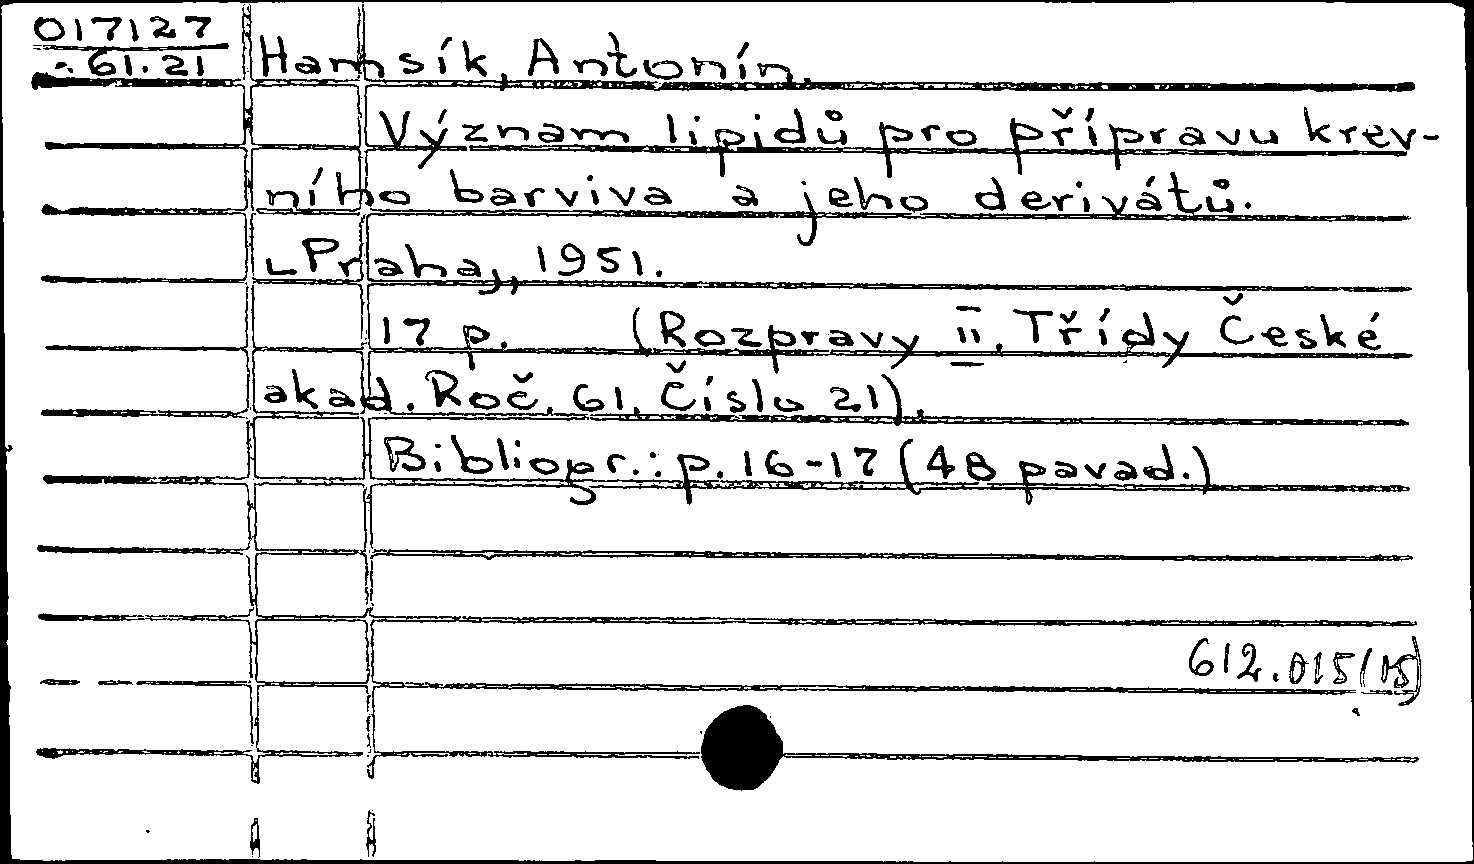 017127
61.21
Hamsík, Antonín.
Význam lipidů pro přípravu krev-
ního barviva a jeho derivátů.
[Praha], 1951.
17 p. (Rozpravy II. Třídy České
akad. Roč. 61. Číslo 21).
Bibliogr.: p. 16-17 (48 pavad.)
612.015(15)